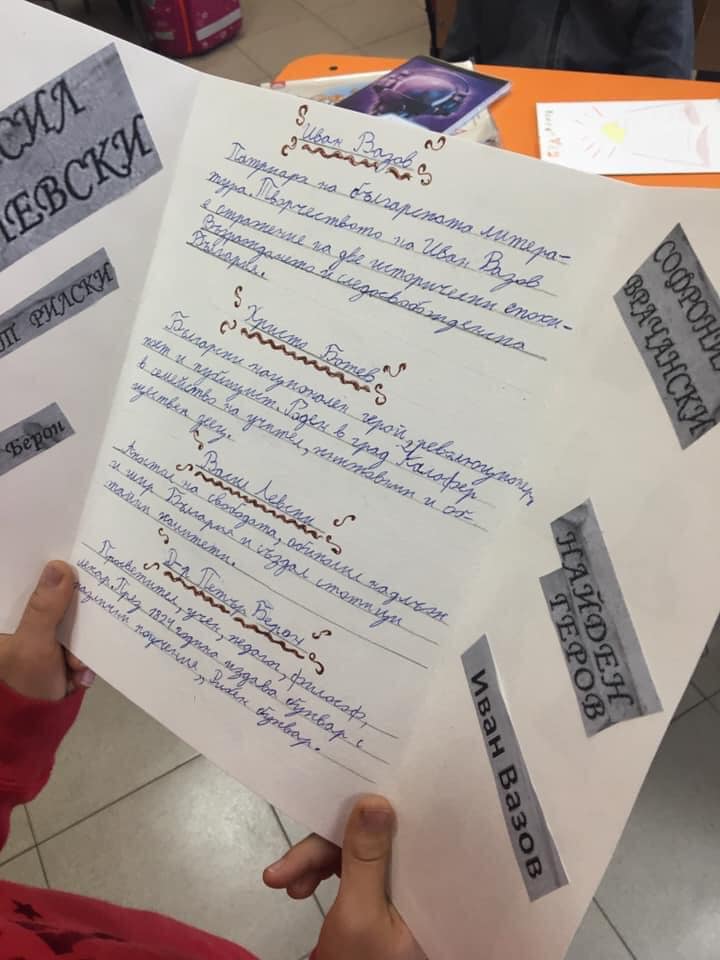 СИЛ
ЛЕВСКИ
П РИЛСКИ
Берон
Иван Вазов
Патриарх на българската литера-
тура. Творчеството на Иван Вазов
е отражение на две исторически епохи-
Възраждането и следосвобожденска
България.
Христо Ботев
Български национален герой, революционер,
поет и публицист. Роден в град Калофер
в семейство на учител, книжовник и об-
ществен деец.
Васил Левски
Апостол на свободата, обиколил надлъж
и шир България и създал стотици
тайни комитети.
Д-р Петър Берон
Просветител, учен, педагог, философ,
лекар. През 1824 година издава буквар с
различни поучения, Рибен буквар.
СОФРОНИЙ
ВРАЧАНСКИ
НАЙДЕН
ГЕРОВ
Иван Вазов